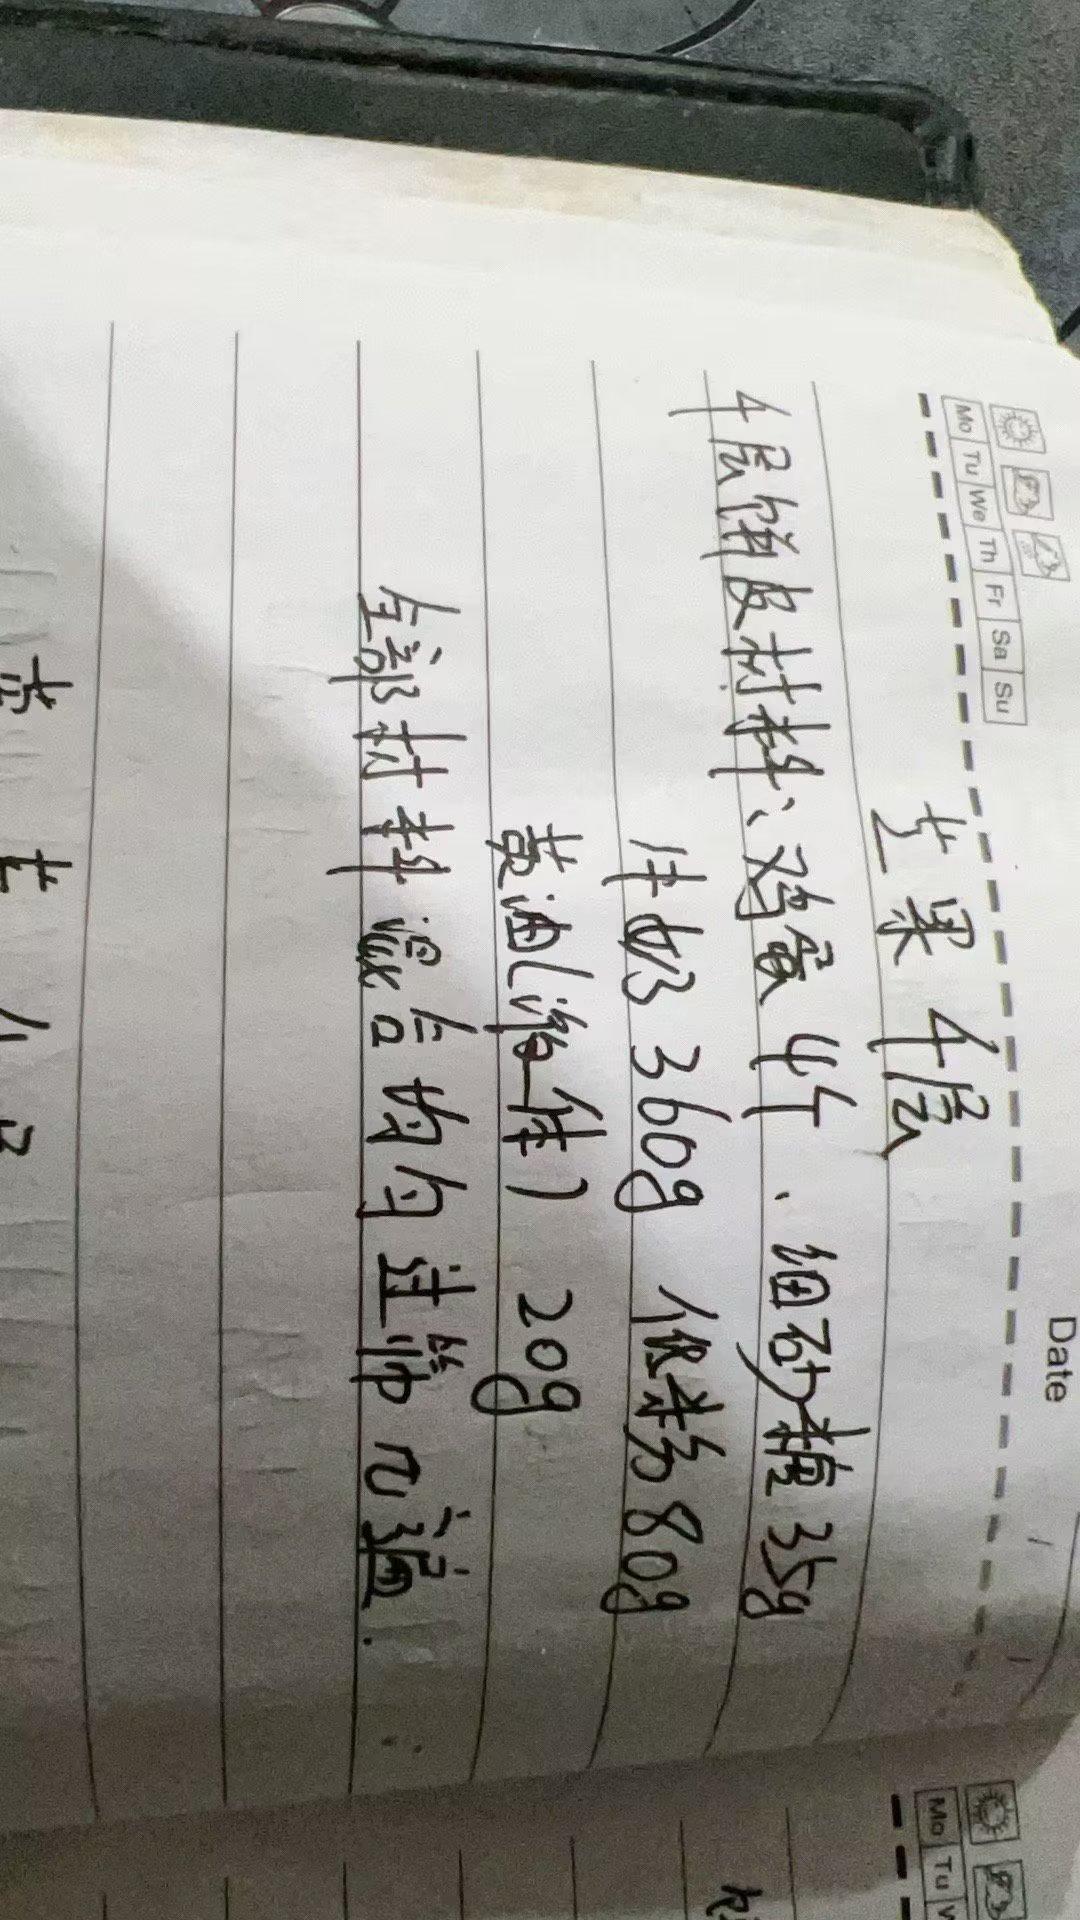 Mo Tu We Th Fr Sa Su
Date
芒果 千层
千层饼皮材料、鸡蛋4个.细砂糖35g
牛奶360g 低粉80g
黄油(溶化) 20g
全部材料混合均匀过筛几遍.
Mo Tu